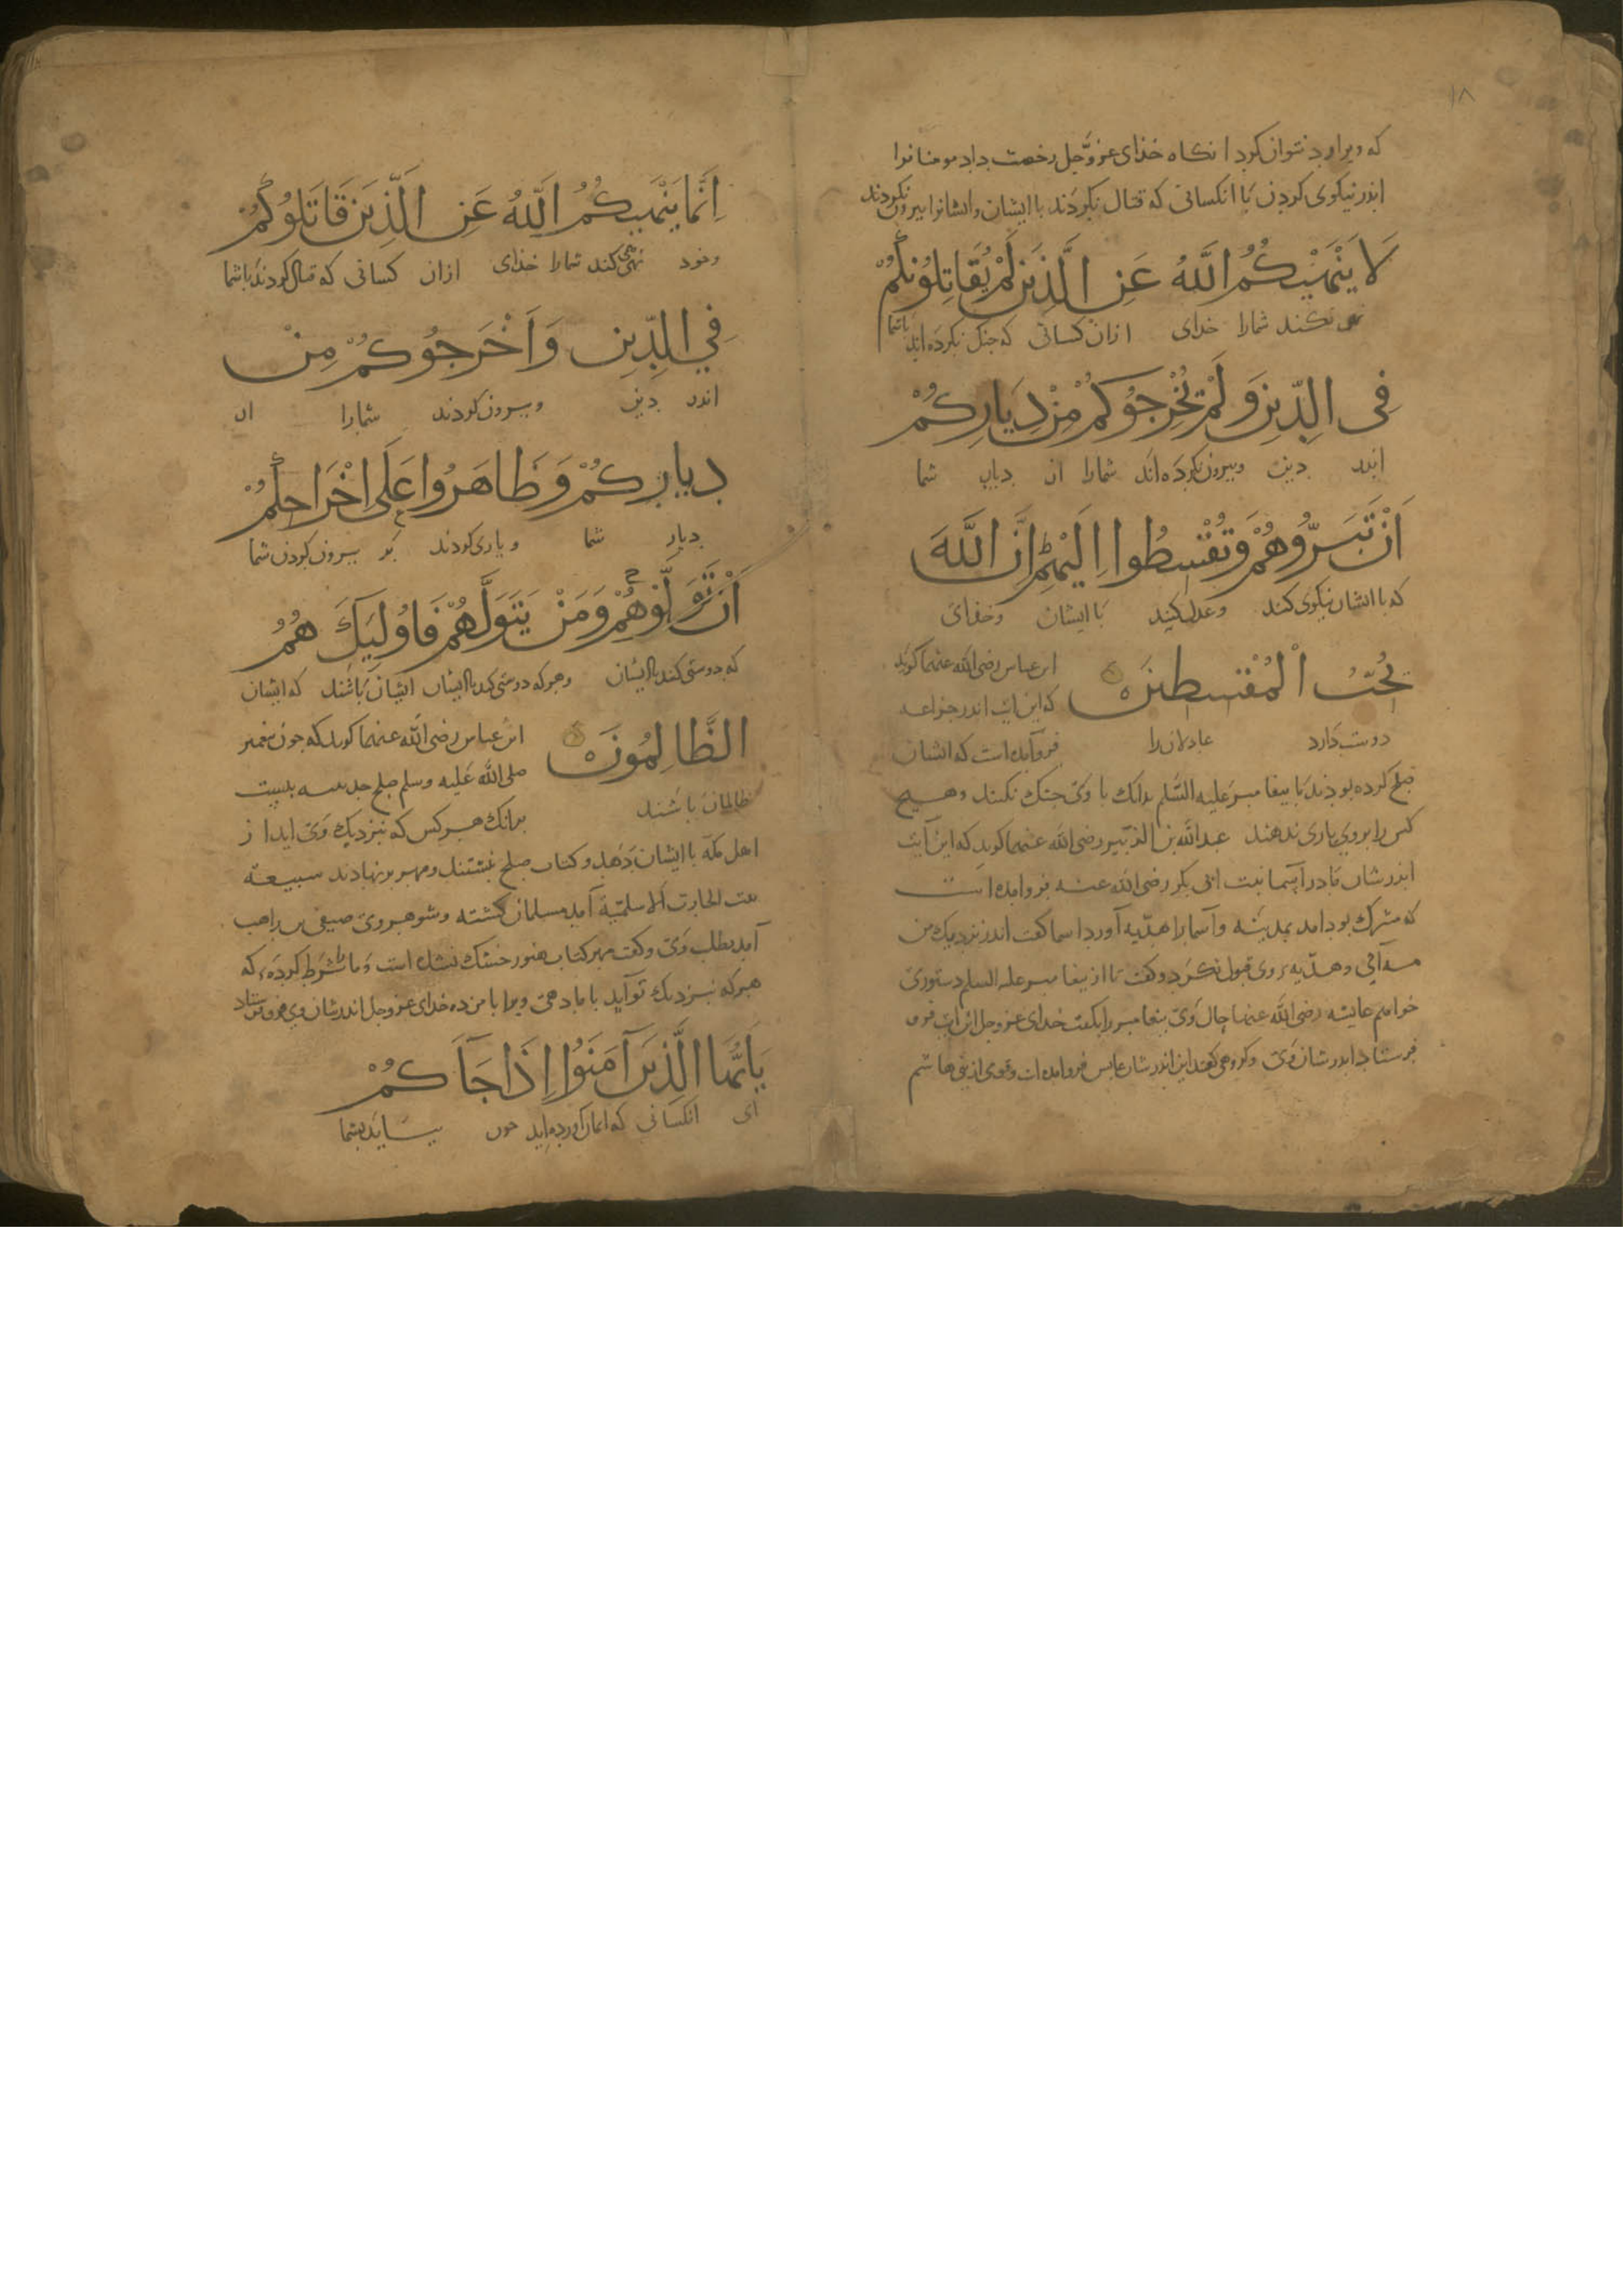 ۱۸
که ویرا رد نتوان کرد انکاه خذای عزوجل رخصت داد مومنانرا
اندر نیکوی کردن با انکسانی که قتال نکردند با ایشان وایشانرا بیرون نکردند
لَا يَنْهَيٰكُمُ اللَّهُ عَنِ الَّذِينَ لَمْ يُقَاتِلُونَكُمْ
نهی نکند شمارا خدای ازان کسانی که جنک نکرده اند باشما
فِى الدِّينِ وَلَمْ يُخْرِجُوكُمْ مِنْ دِيَارِكُمْ
اندر دین وبیرون نکرده اند شمارا از دیار شما
اَنْ تَبَرُّوهُمْ وَتُقْسِطُوا اِلَيْهِمْ اِنَّ اللَّهَ
که با ایشان نیکوی کند وعدل کنید با ایشان وخذای
يُحِبُّ الْمُقْسِطِينَ
ابن عباس رضی الله عنهما کوید
که این ایت اندر خزاعه
دوست دارد عادلان را
فروآمده است که ایشان
صلح کرده بوذند با پیغامبر علیه السلم بدانک با وی جنک نکنند وهیچ
کس را بروی یاری ندهند عبدالله بن الزبیر رضی الله عنهما کوید که این آیت
اندر شان مادر اسما بنت ابی بکر رضی الله عنه فروامده است
که مشرک بود امد بمدینه واسما را هدیه آورد اسما کفت اندر نزدیک من
میآئی وهدیه ء وی قبول نکرد وکفت تا از پیغامبر علیه السلم دستوری
خواهم عایشه رضی الله عنها حال وی پیغامبر را بکفت خدای عزوجل این ایت فرو
فرستاد اندر شان وی وکروهی کفتند این اندر شان عباس فروامده است وقومی از بنی هاشم
اِنَّمَا يَنْهَيٰكُمُ اللَّهُ عَنِ الَّذِينَ قَاتَلُوكُمْ
وخود نهی کند شمارا خذای ازان کسانی که قتال کردند باشما
فِي الدِّينِ وَاَخْرَجُوكُمْ مِنْ
اندر دین وبیرون کردند شمارا از
دِيَارِكُمْ وَظَاهَرُوا عَلَى اِخْرَاجِكُمْ
دیار شما ویاری کردند بر بیرون کردن شما
اَنْ تَوَلَّوْهُمْ وَمَنْ يَتَوَلَّهُمْ فَاُولٰئِكَ هُمُ
که دوستی کند با ایشان وهرکه دوستی کند با ایشان ایشان باشند که ایشان
الظَّالِمُونَ
ابن عباس رضی الله عنهما کوید که جون پیغمبر
صلی الله علیه وسلم صلح حدیبیه ببست
ظالمان باشند
برانک هرکس که بنزدیک وی اید از
اهل مکه با ایشان دهد وکتاب صلح نبشتند ومهر برنهادند سبیعة
بنت الحارث الاسلمیة آمد مسلمان کشته وشوهر وی صیفی بن راهب
آمد بطلب وی وکفت مهر کتاب هنوز خشک نشده است وما را شرط کرده ء که
هرکه بنزدیک تو آید با ما دهی ویرا با من ده خدای عزوجل اندر شان وی فروفرستاد
يَا اَيُّهَا الَّذِينَ آمَنُوا اِذَا جَآءَكُمْ
ای انکسانی که ایمان آورده اید جون بیایند بشما